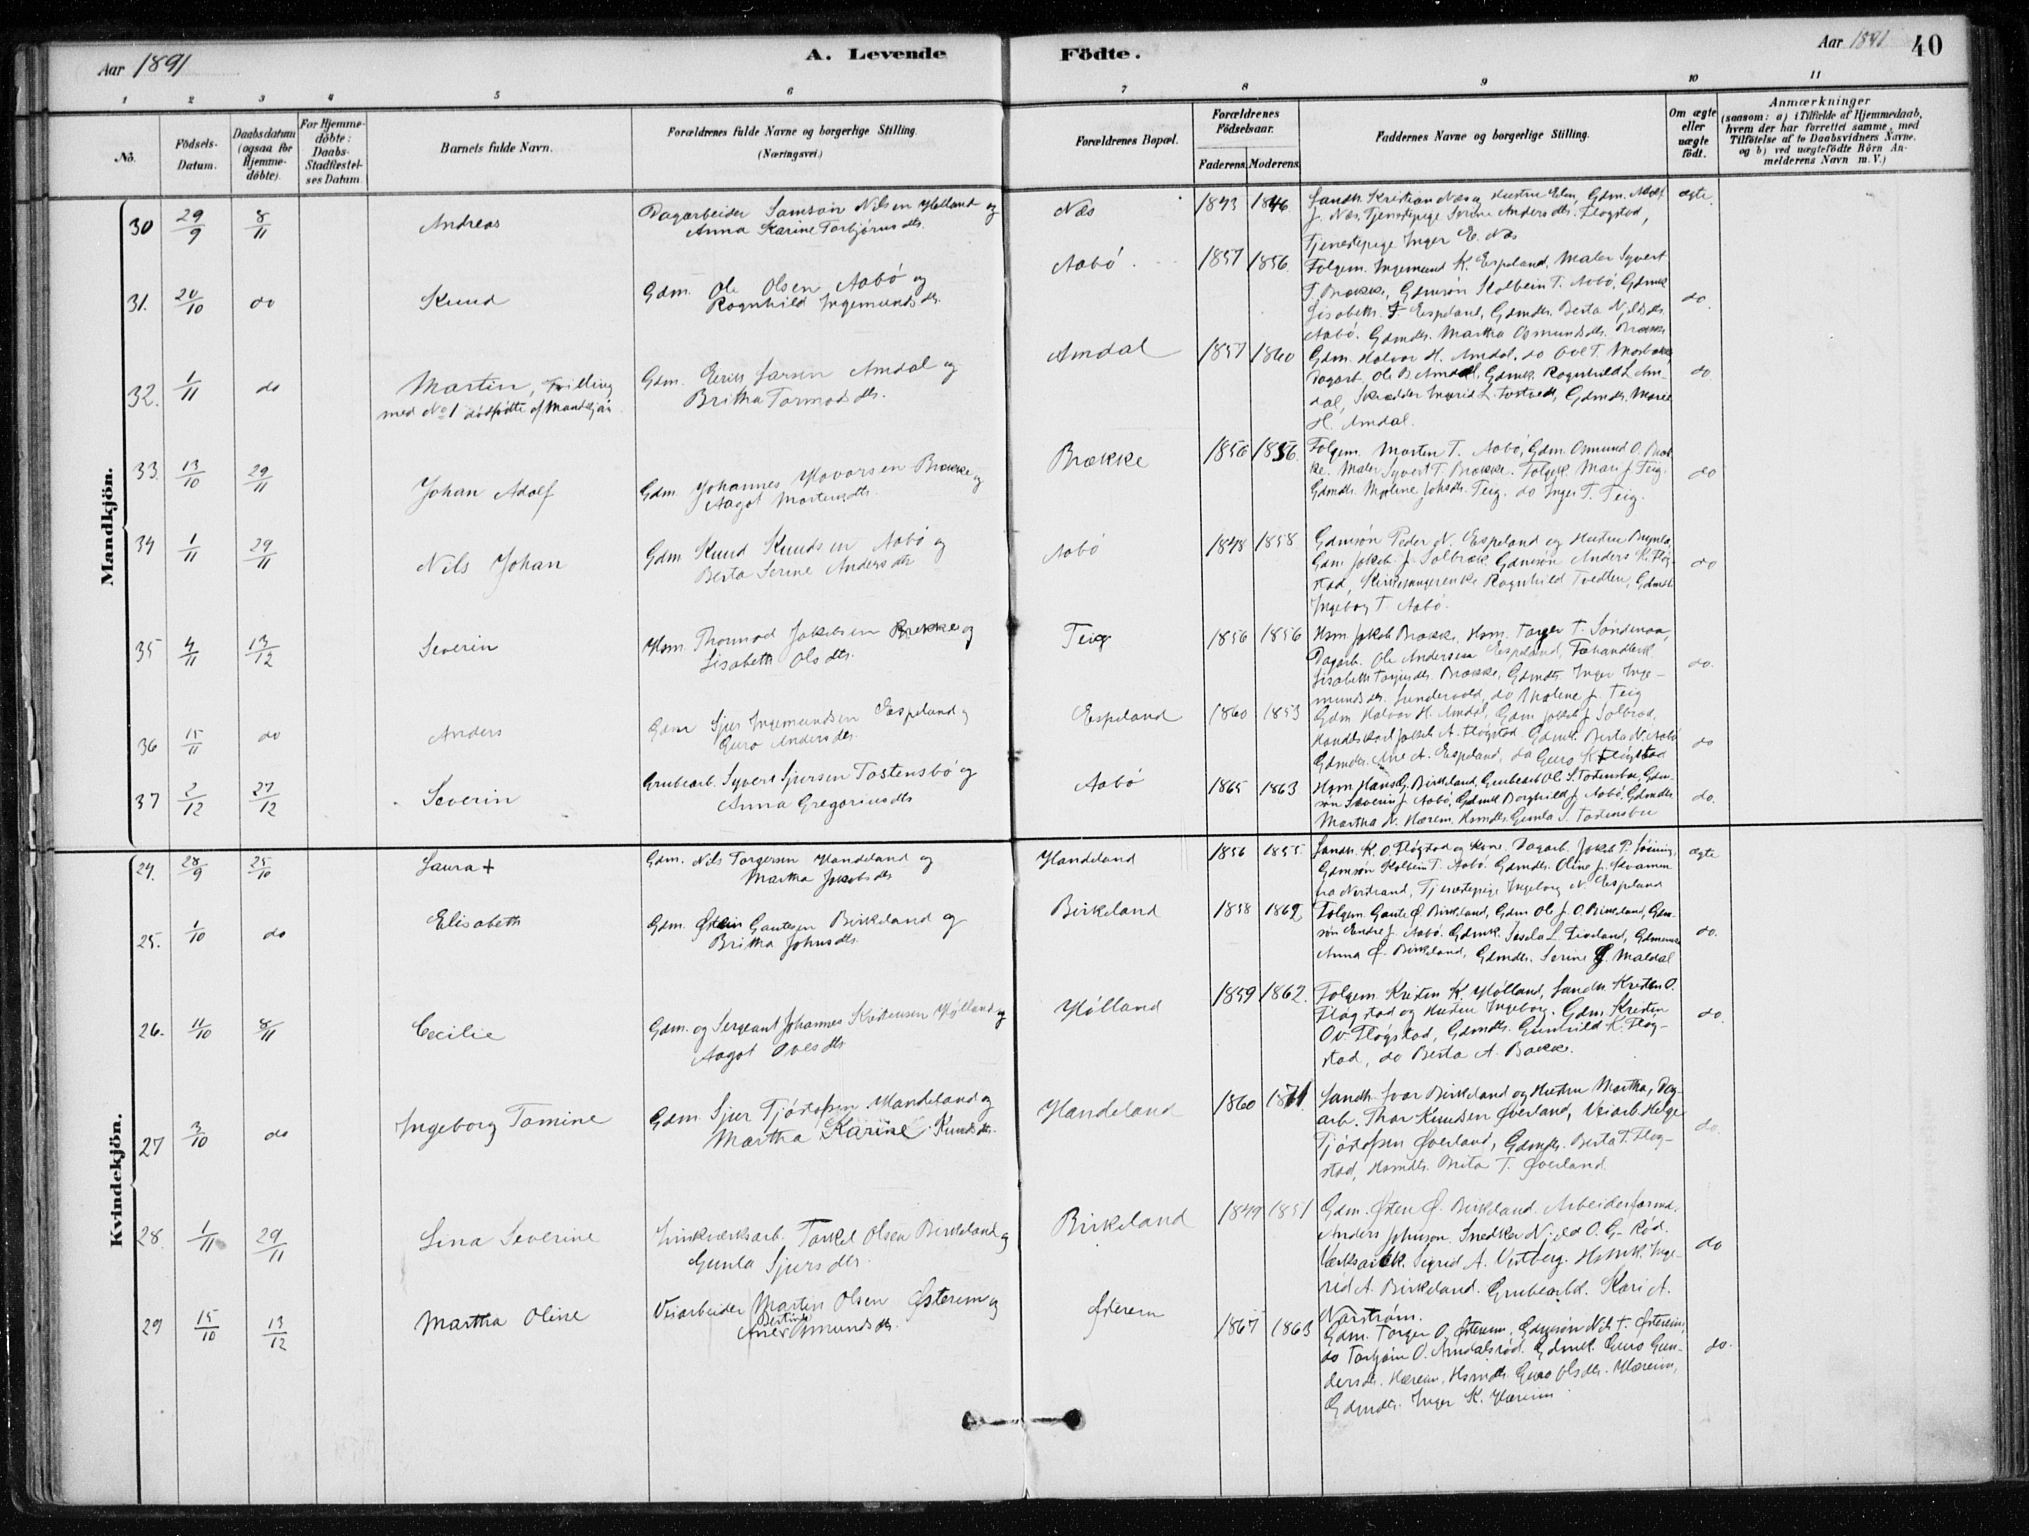 Aar 1891
A. Levende Födte.
Aar 1891 40
1 2 3 4 5 6 7 8 9 10 11
No.
Födsels-Datum.
Daabsdatum (ogsaa for Hjemme-döbte).
For Hjemme-döbte: Daabs-Stadfæstel-ses Datum.
Barnets fulde Navn.
Forældrenes fulde Navne og borgerlige Stilling. (Næringsvei.)
Forældrenes Bopæl.
Forældrenes Födselsaar.
Faderens. Moderens.
Faddernes Navne og borgerlige Stilling.
Om ægte eller uægte födt.
Anmærkninger
(saasom: a) i Tilfælde af Hjemmedaab, hvem der har forrettet samme, med Tilföielse af to Daabsvidners Navne. og b) ved uægtefödte Börn An-melderens Navn m. V.)
Mandkjön.
30 29/9 8/11 Andreas
Dagarbeider Samson Nilsen Hølland og
Anna Karine Torbjørnsdtr.
Næs 1843 1846
Landh. Kristian Næs og Hustru Elen, Gdm. Adolf
J. Næs, Tjenestepige Serine Andersdtr. Fløgstad,
Tjenestepige Inger E. Næs
ægte.
31. 20/10 do Knud
Gdm. Ole Olsen Aabö og
Ragnhild Ingemundsdtr.
Aabö 1857 1856
Folgem. Ingemund K. Espeland, Maler Syvert
T. Brække, Gdmsön Kolbein T. Aabö, Gdmk
Lisabeth T. Espeland, Gdmdtr. Berta Njeldsdtr.
Aabö. Gdmdtr. Martha Osmundsdtr. Brække
do.
32. 1/11 do Martin, Tvilling
med No 1 dödfödte af Mandkjön
Gdm. Eerik Larsen Amdal og
Britha Tormodsdtr.
Amdal 1857 1860
Gdm. Halvor H. Amdal, do Ove T.
Dagarb. Ole B. Amdal, Gdmk. Ragnhild L. Am-
dal, Skrædder Ingrid L. Gdmdtr. Marie
H. Amdal.
do.
33. 13/10 29/11 Johan Adolf
Gdm. Johannes Havorsen Brække og
Aagot Mortensdtr.
Brække 1856 1856.
Folgem. Morten T. Aabö, Gdm. Osmund O. Bræk-
ke. Maler Syvert T. Brække. Folgek Mari J. Teig.
Gdmdtr. Malene Johsdtr. Teig. do Inger T. Teig.
do
34 1/11 29/11 Nils Johan
Gdm Knud Knudsen Aabö og
Berta Serine Andersdtr
Aabö 1848 1858
Gdmsön Peder N. Espeland og Hustru
Gdm. Jakob J. Solbræk, Gdmsön Anders K. Fløg-
stad, Ragnhild Tvedten, Gdmdtr
Ingeborg T. Aabö.
do
35 4/11 13/12 Severin
Hsm. Thormod Jakobsen Brekke og
Lisabeth Olsdtr.
Teig 1856 1856
Hsm. Jakob Brække, Hsm. Torger T. Söndenaa,
Dagarb. Ole Andersen Espeland,
Lisabeth Brække, Gdmdtr. Inger Inge-
mundsdtr. Sundevold, do Malene J. Teig
do.
36 15/11 do Anders
Gdm Sjur Ingemundsen Espeland og
Guro Andersdtr.
Espeland 1860 1853
Gdm Halvor H. Amdal, Gdm Jakob J. Solbræk,
Jakob A. Fløgstad. Gdmk. Berta N. Aabö
Gdmdtr. Ane A. Espeland, do Guro K. Fløgstad
do
37 2/12 27/12 Severin
Grubearb. Syvert Sjursen Tostensbö og
Anna Gregoriusdtr
Aabö 1865 1863
Hsm Hans G. Birkeland, Grubearb Ole S. Tostensbö, Gdm-
sön Severin J. Aabö, Gdmk Borghild J. Aabö, Gdmdtr
Martha N. Hærem. Hsmdtr. Gunla S. Tostensbö
do.
Kvindekjön.
24. 28/9 25/10 Laura +
Gdm. Nils Torgersen Handeland og
Martha Jakobsdtr
Handeland 1856 1855
Landh. K. O. Fløgstad og Kone. Dagarb. Jakob P.
Gdmsön Kolbein T. Aabö. Gdmdtr. Oline J. Kvammen
fra Nerstrand, Tjenestepige Ingeborg N. Espeland
ægte
25. 1/10 do Elisabeth
Gdm. Østein Gautesen Birkeland og
Britha Johnsdtr
Birkeland 1858 1862
Folgem. Gaute Ø. Birkeland, Gdm Ole J. O. Birkeland, Gdm-
sön Endre J. Aabö. Gdmk. Sesela L. Gdmenke
Anna Ø. Birkeland, Gdmdtr. Serine G. Maldal
do.
26. 11/10 8/11 Cecilie
Gdm. og Sergeant Johannes Kristensen Hølland og
Aagot Ovesdtr
Hølland 1859 1862.
Folgem. Kristen K. Hølland, Landh. Kresten O.
Fløgstad og Hustru Ingeborg. Gdm. Kresten
Ov. Fløgstad, Gdmdtr. Gunhild K. Fløg-
stad, do Berta A. Bakke.
do.
27 3/10 do Ingeborg Tomine
Gdm. Sjur Tjöstofsen Handeland og
Martha Karine Knudsdtr.
Handeland 1860 1871
Landh. Ivar Birkeland og Hustru Martha, Dag-
arb. Thor Knudsen Øverland, Veiarb Helge
Tjöstofsen Øverland, Gdmdtr. Berta T. Fløg-
stad, Hsmdtr. Brita T. Øverland
do.
28. 1/11 29/11 Lina Severine
Zinkværksarb. Torkel Olsen Birkeland og
Gunla Sjursdtr.
Birkeland 1849 1851
Gdm. Østen Ø. Birkeland. Arbeiderformd.
Anders Johnson. Snedker Njeld O. G. Rød.
Værksarbk. Sigrid A. Vestberg. Hsmk. Inge-
rid A. Birkeland. Grubearbk. Kari A.
Narstrøm.
do
29 15/10 13/12 Martha Oline
Veiarbeider Martin Olsen Østerem og
Ane Bertine Osmundsdtr.
Østerem 1867 1863
Gdm. Torger O. Østerem, Gdmsön Nils T. Østerem,
do Torbjørn O. Amdalsrød. Gdmk. Guro Gun-
dersdtr. Hærem, Hsmdtr. Guro Olsdtr. Hærem,
Gdmdtr. Inger K. Hærem
do.